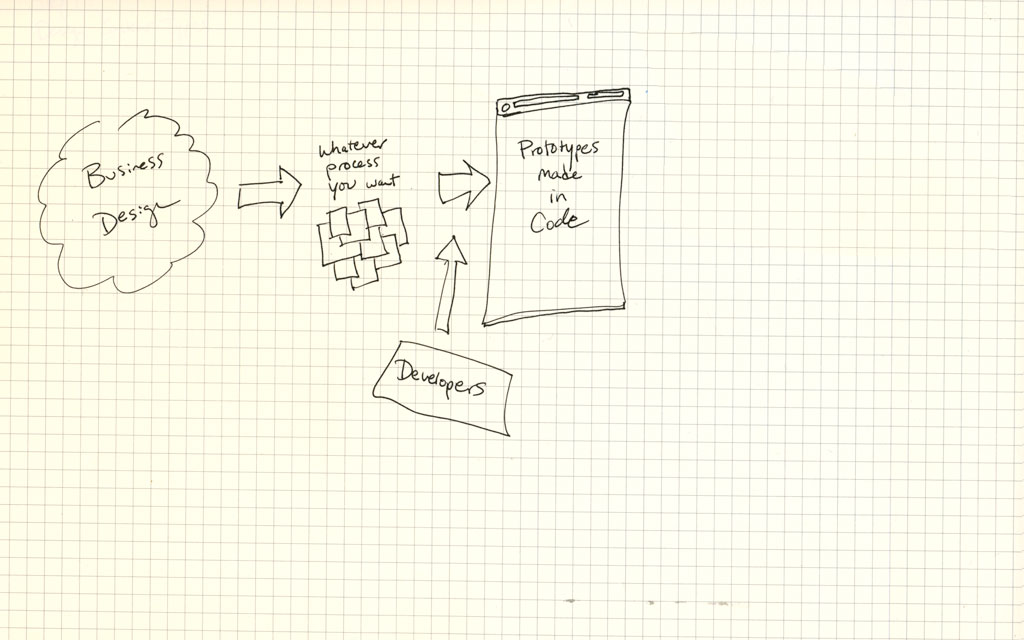 Business
Design
Whatever
process
you want
Prototypes
made
in
Code
Developers